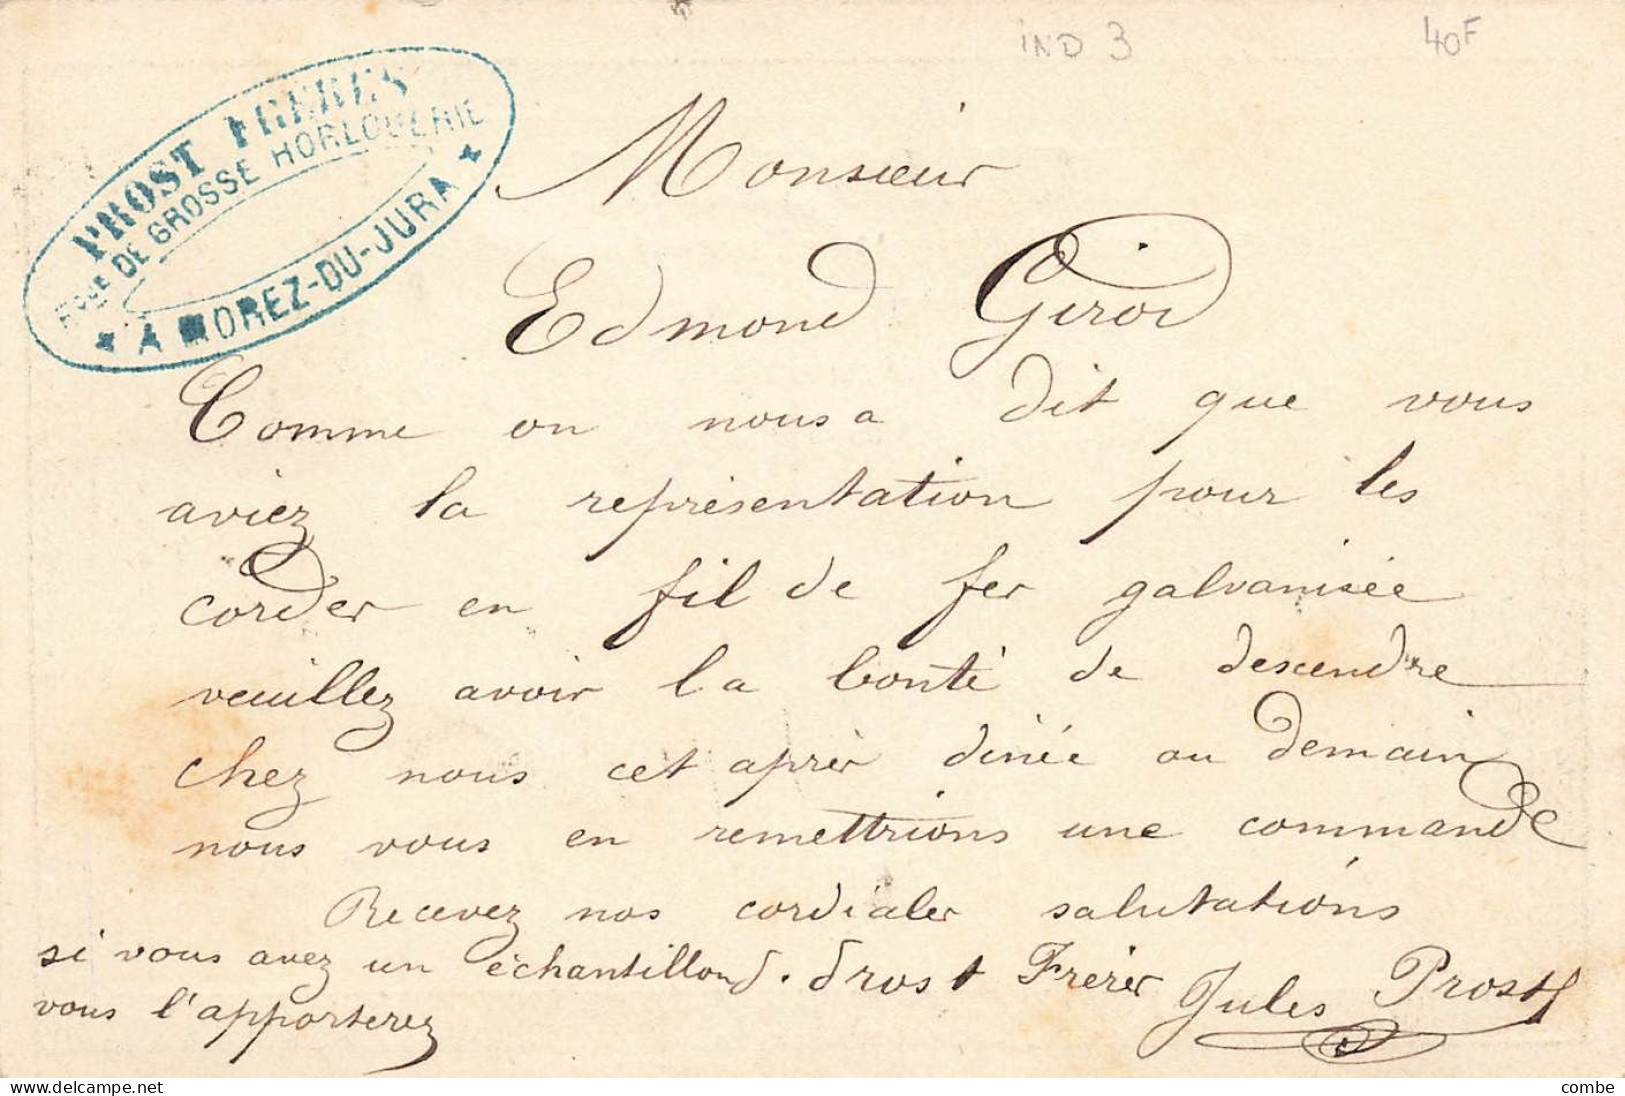 IND 3
40F
PROST FRERES
Fque DE GROSSE HORLOGERIE
A MOREZ-DU-JURA
Monsieur
Edmond Girod
Comme on nous a dit que vous
aviez la représentation pour les
corder en fil de fer galvanisée
veuillez avoir la bonté de descendre
chez nous cet après dinée ou demain
nous vous en remettrions une commande
Recevez nos cordiales salutations
si vous avez un échantillond. Prost Frères Jules Prost
vous l'apporterez
combe